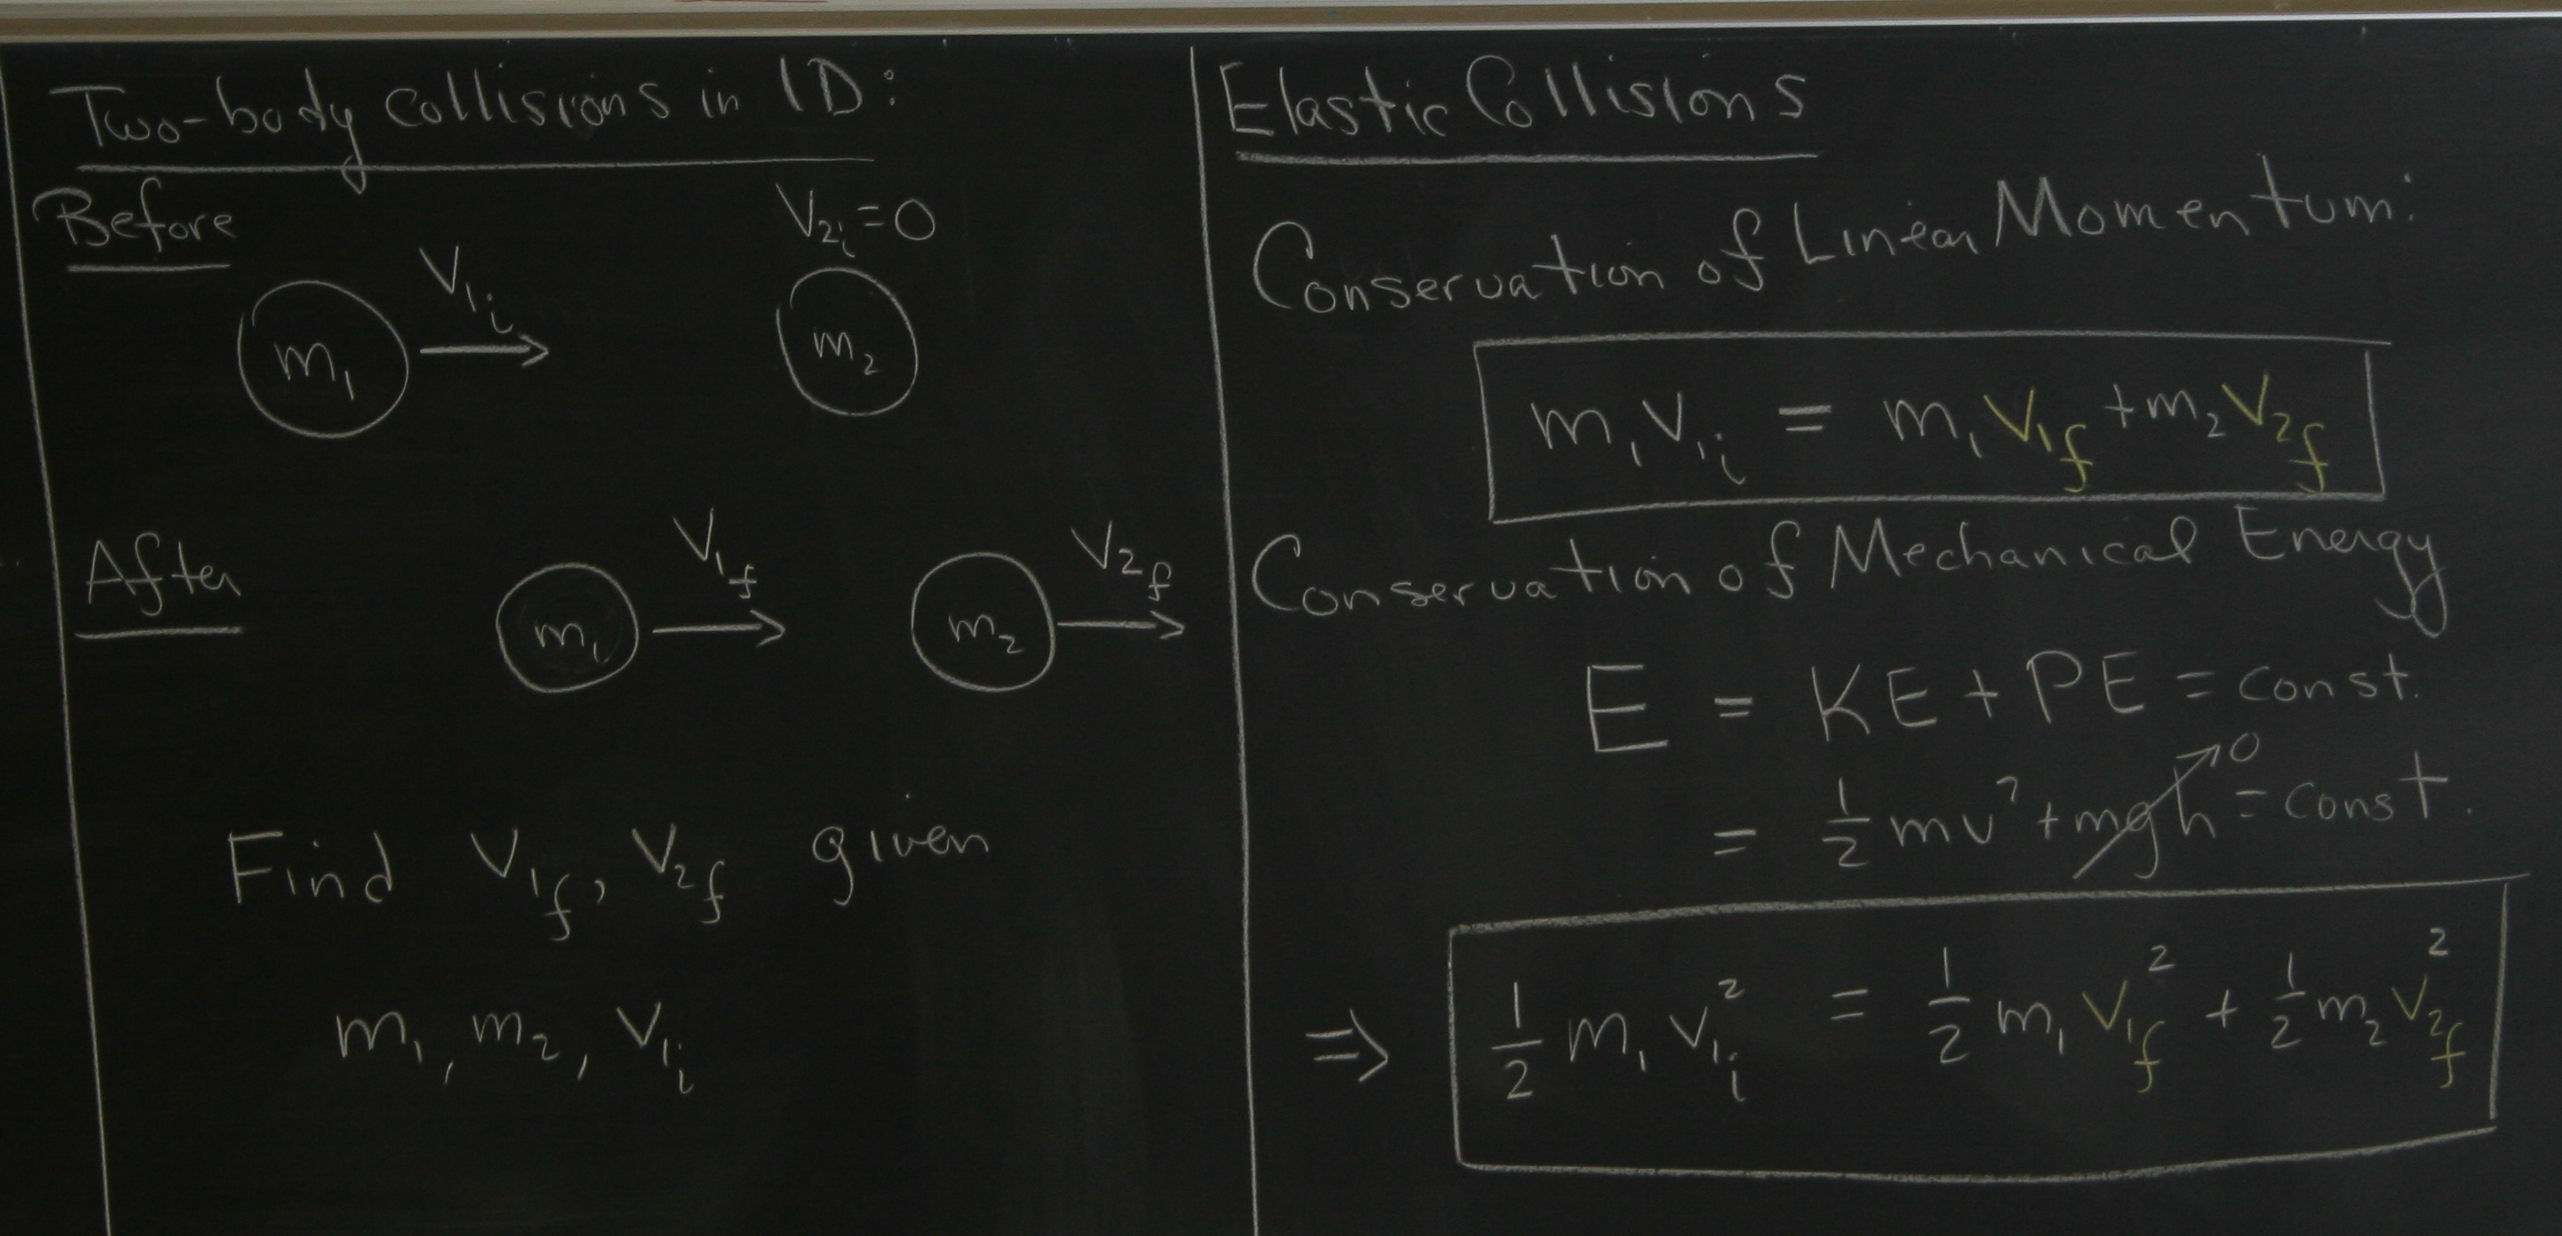 Two-body collisions in 1D:
Before
V₁ᵢ
V₂ᵢ=0
m₁
m₂
After
V₁f
V₂f
m₁
m₂
Find V₁f, V₂f given
m₁, m₂, V₁ᵢ
Elastic Collisions
Conservation of Linear Momentum:
m₁V₁ᵢ = m₁V₁f + m₂V₂f
Conservation of Mechanical Energy
E = KE + PE = const.
0
= ½mv² + mgh = const.
⇒ ½m₁V₁ᵢ² = ½m₁V₁f² + ½m₂V₂f²